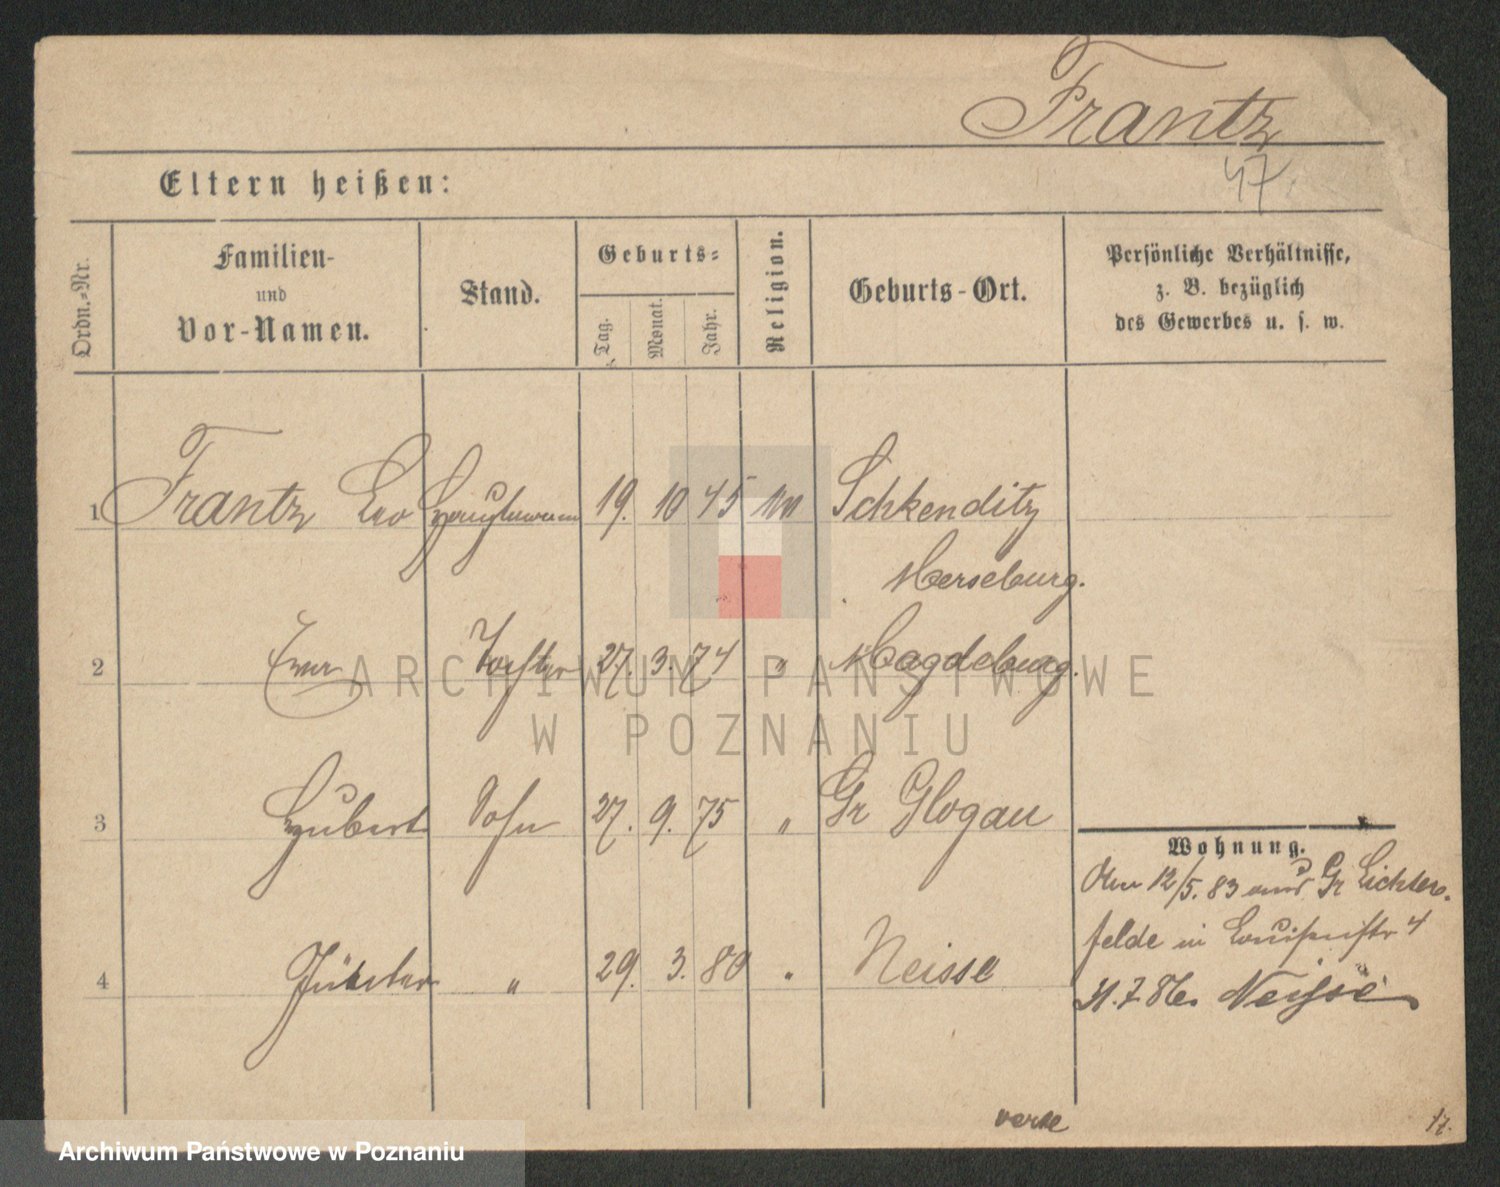 Frantz
47.
Eltern heißen:
Ordn.-Nr.
Familien-
und
Vor-Namen.
Stand.
Geburts-
Tag.
Monat.
Jahr.
Religion.
Geburts-Ort.
Persönliche Verhältnisse,
z. B. bezüglich
des Gewerbes u. s. w.
1 Frantz Leo Hauptmann 19. 10 45 Schkenditz
Merseburg.
2 Tochter 27. 3. 74 " Magdeburg.
3 Hubert Sohn 27. 9. 75 " Gr Glogau
4 Günter " 29. 3. 80 " Neisse
Wohnung.
12/5. 83 Gr Lichter-
felde in Louisenstr 4
7 86. Neisse
verte
17.
ARCHIWUM PAŃSTWOWE
W POZNANIU
Archiwum Państwowe w Poznaniu